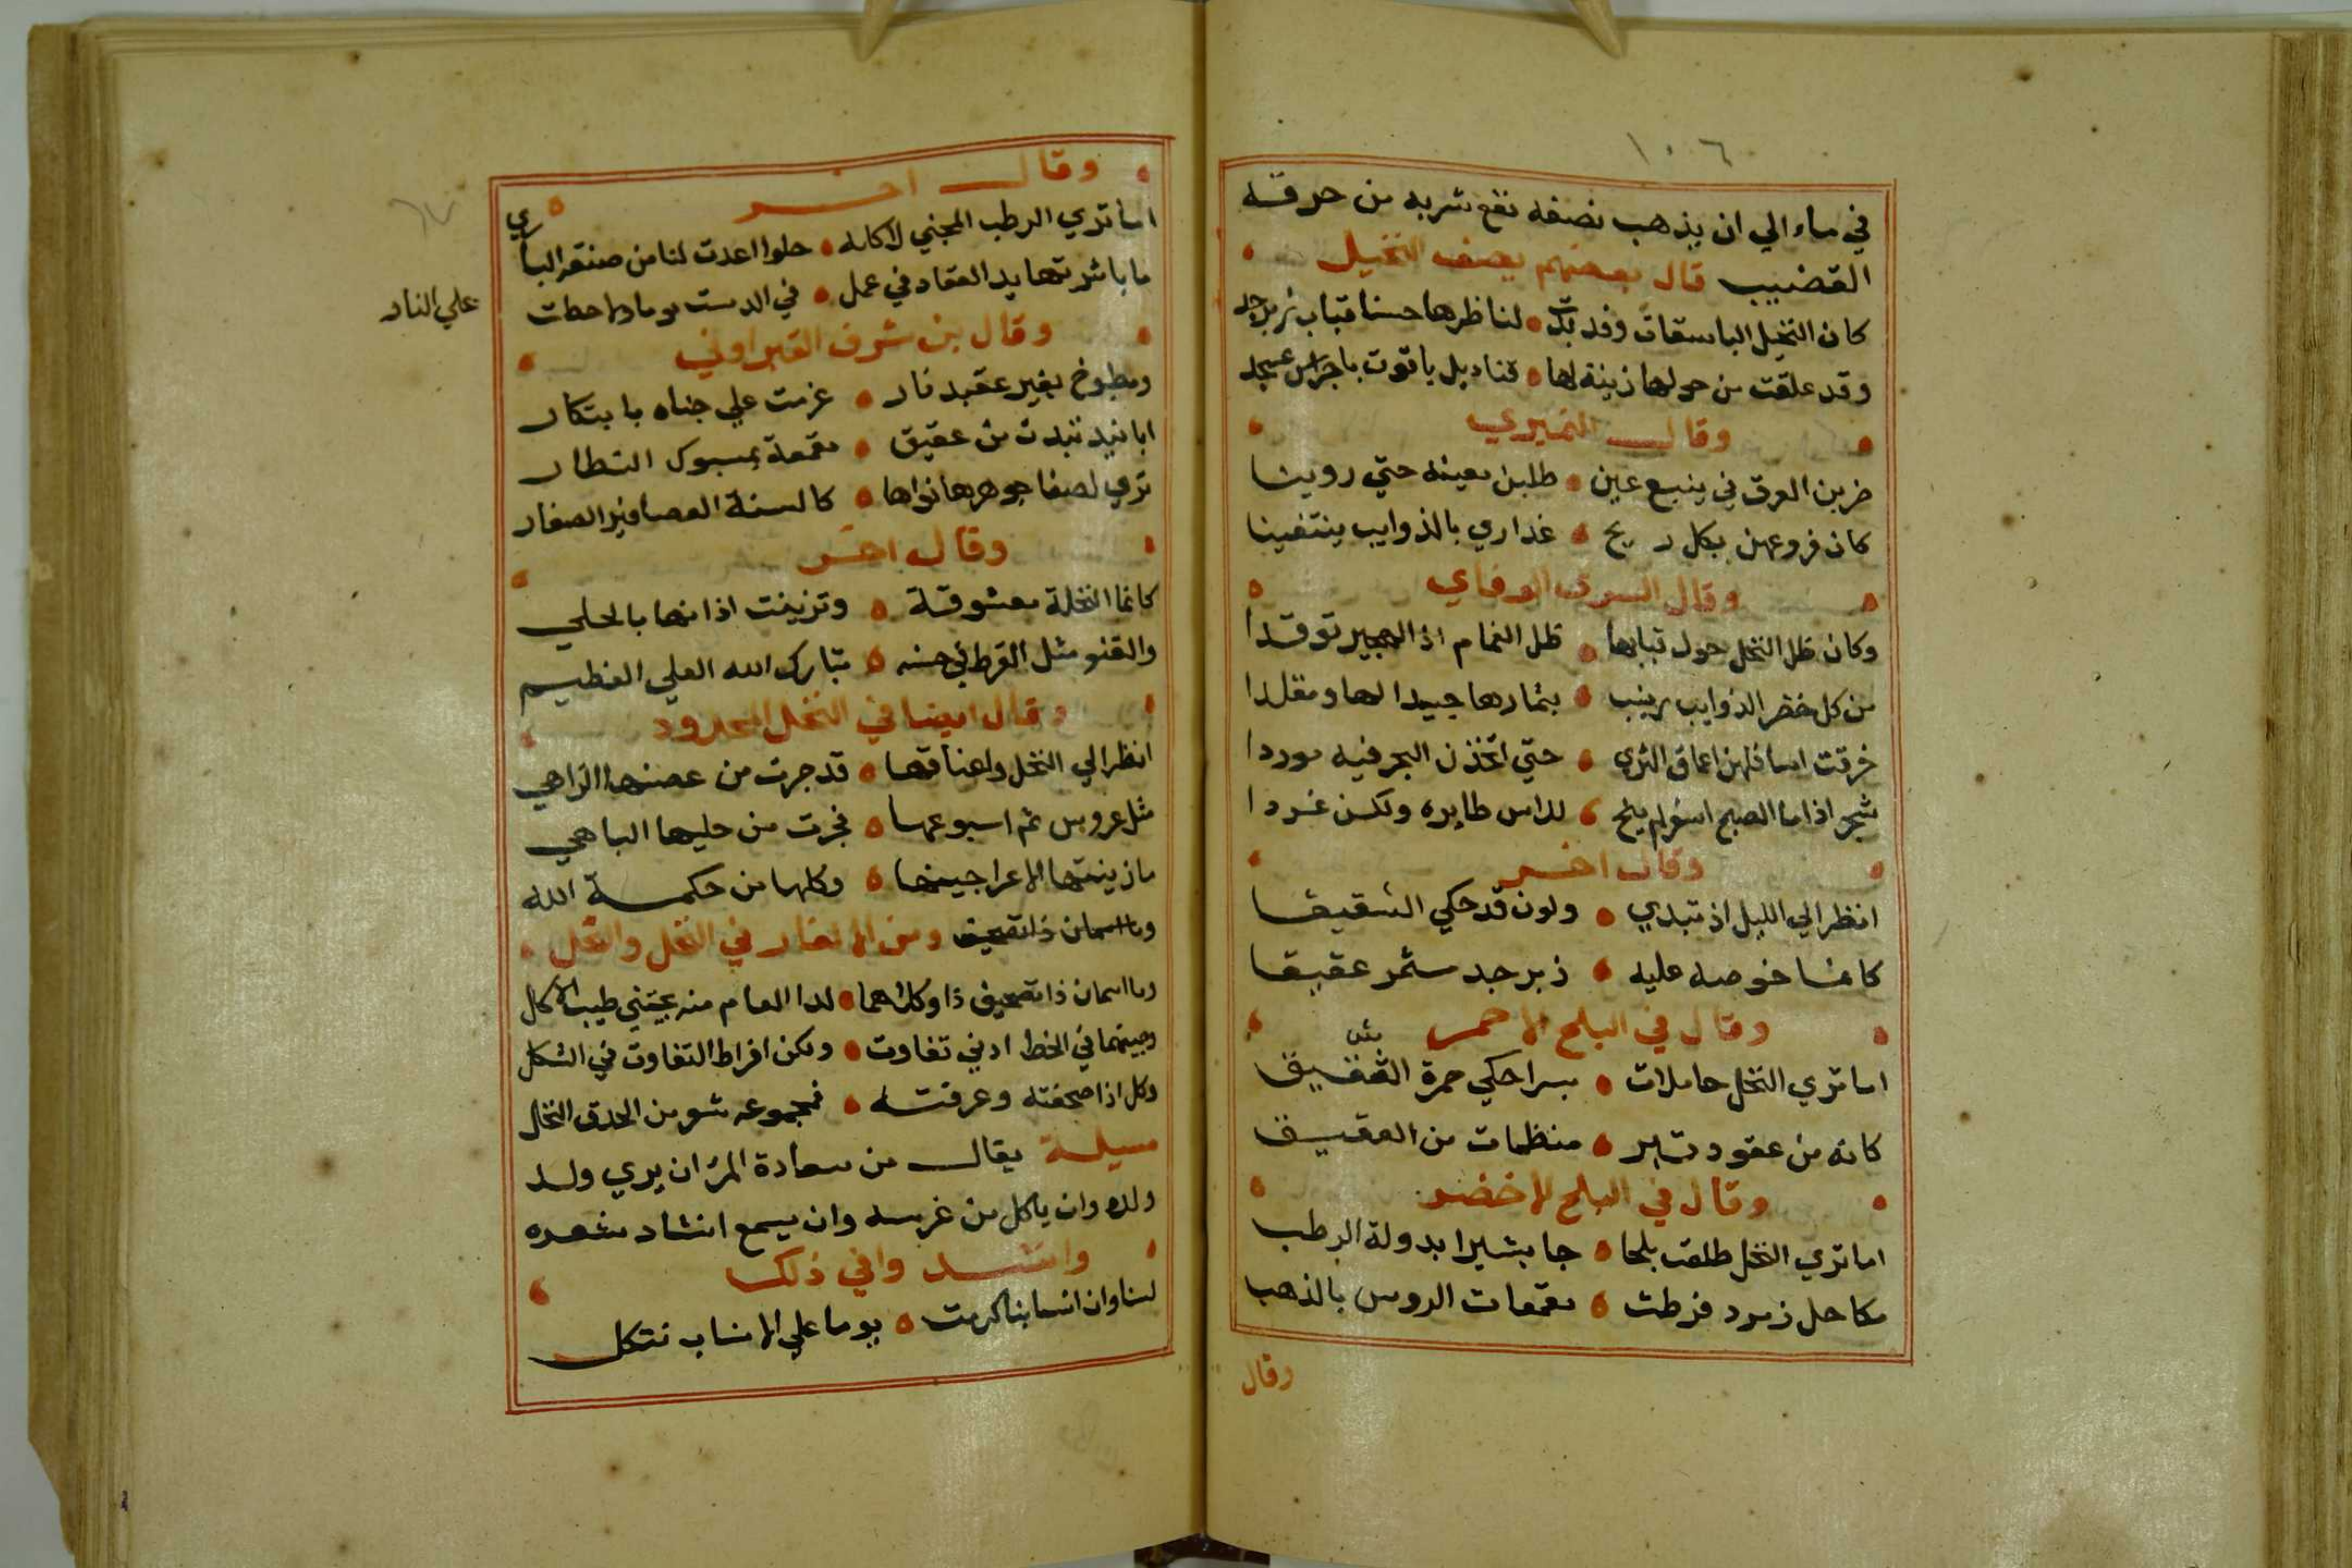 ١٠٦
في ماء الي ان يذهب نصفه نفع شربه من حرقة
القضيب قال بعضهم يصف النخيل
كان النخيل الباسقات وقد بدت لناظرها حسنا قباب زبرجد
وقد علقت من حولها زينة لها قناديل ياقوت باجراس عسجد
وقال النميري
ضربن العرق في ينبع عين طلبن معينه حتي روينا
كان فروعهن بكل ريح عذاري بالذوايب ينتفينا
وقال السري الرفاي
وكان ظل النخل حول قبابها ظل الغمام اذا الهجير توقدا
من كل خضر الذوايب زينب بثمارها جيدا لها ومقلدا
خرقت اسافلهن اعماق الثري حتي اتخذن البحر فيه موردا
شجر اذا ما الصبح اسفر لم يلح للراس طايره ولكن غردا
وقال اخر
انظر الي الليل اذ تبدي ولون قد حكي الشقيقا
كانما خوصه عليه زبرجد مثمر عقيقا
وقال في البلح الاحمر
اما تري النخل حاملات بسرا حكي حمرة الشقيق
كانه من عقود تبر منظمات من العقيق
وقال في البلح الاخضر
اما تري النخل طلعت بلحا جا بشيرا بدولة الرطب
مكاحل زمرد خرطت مقمعات الروس بالذهب
وقال
وقال اخر
اما تري الرطب المجني لاكله حلوا اعدت لنا من صنعة الباري
ما باشرتها يد العقاد في عمل في الدست يوما ولا حطت
علي النار
وقال بن شرف القيراوني
ومطبوخ بغير عقيد نار عزمت علي جناه بابتكار
ابانيد تبدت من عقيق مقمعة بمسبوك النضار
تري لصفا جوهرها نواها كالسنة العصافير الصغار
وقال اخر
كانما النخلة معشوقة وتزينت اذانها بالحلي
والقنو مثل القرط في حسنه تبارك الله العلي العظيم
وقال ايضا في النخل المجرود
انظر الي النخل واعناقها قد جرت من عصنها الزاهي
مثل عروس تم اسبوعها فجرت من حليها الباهي
ما زينتها الا عراجينها وكلها من حكمة الله
وما اسمان ذا تصحيف ومن الالغاز في النخل والنحل
وما اسمان ذا تصحيف ذا وكلاهما لدا العام منه يجتني طيب الاكل
وبينهما في الخط ادني تفاوت ولكن افراط التفاوت في الشكل
وكل اذا صحفته وعرفته فمجموعه شو من الحدق النخل
مسيلة يقال من سعادة المرء ان يري ولد
ولده وان ياكل من غرسه وان يسمع انشاد شعره
وانشد وافي ذلك
لسنا وان انسابنا كرمت يوما علي الانساب نتكل